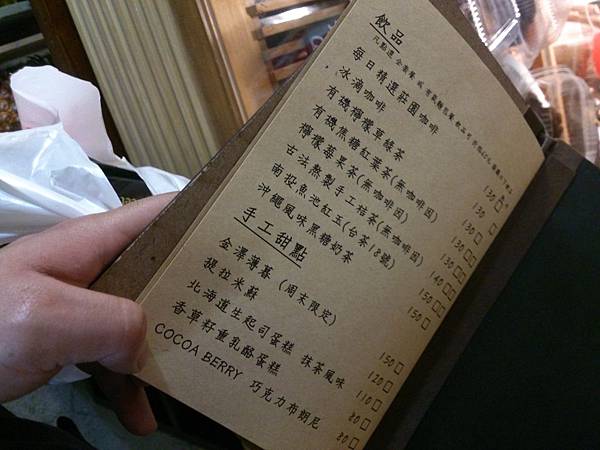 飲品
每日精選莊園咖啡 130 □
冰滴咖啡 130 □
有機檸檬草綠茶 130 □□
有機焦糖紅葉茶(無咖啡因) 130 □□
檸檬莓果茶(無咖啡因) 140 □□
古法熬製手工桔茶(無咖啡因) 150 □□
南投魚池紅玉(台茶18號) 150 □
沖繩風味黑糖奶茶
手工甜點
金澤薄暮 (周末限定) 150 □
提拉米蘇 120 □
北海道生起司蛋糕 抹茶風味 110 □
香草籽重乳酪蛋糕 80 □
COCOA BERRY 巧克力布朗尼 80 □